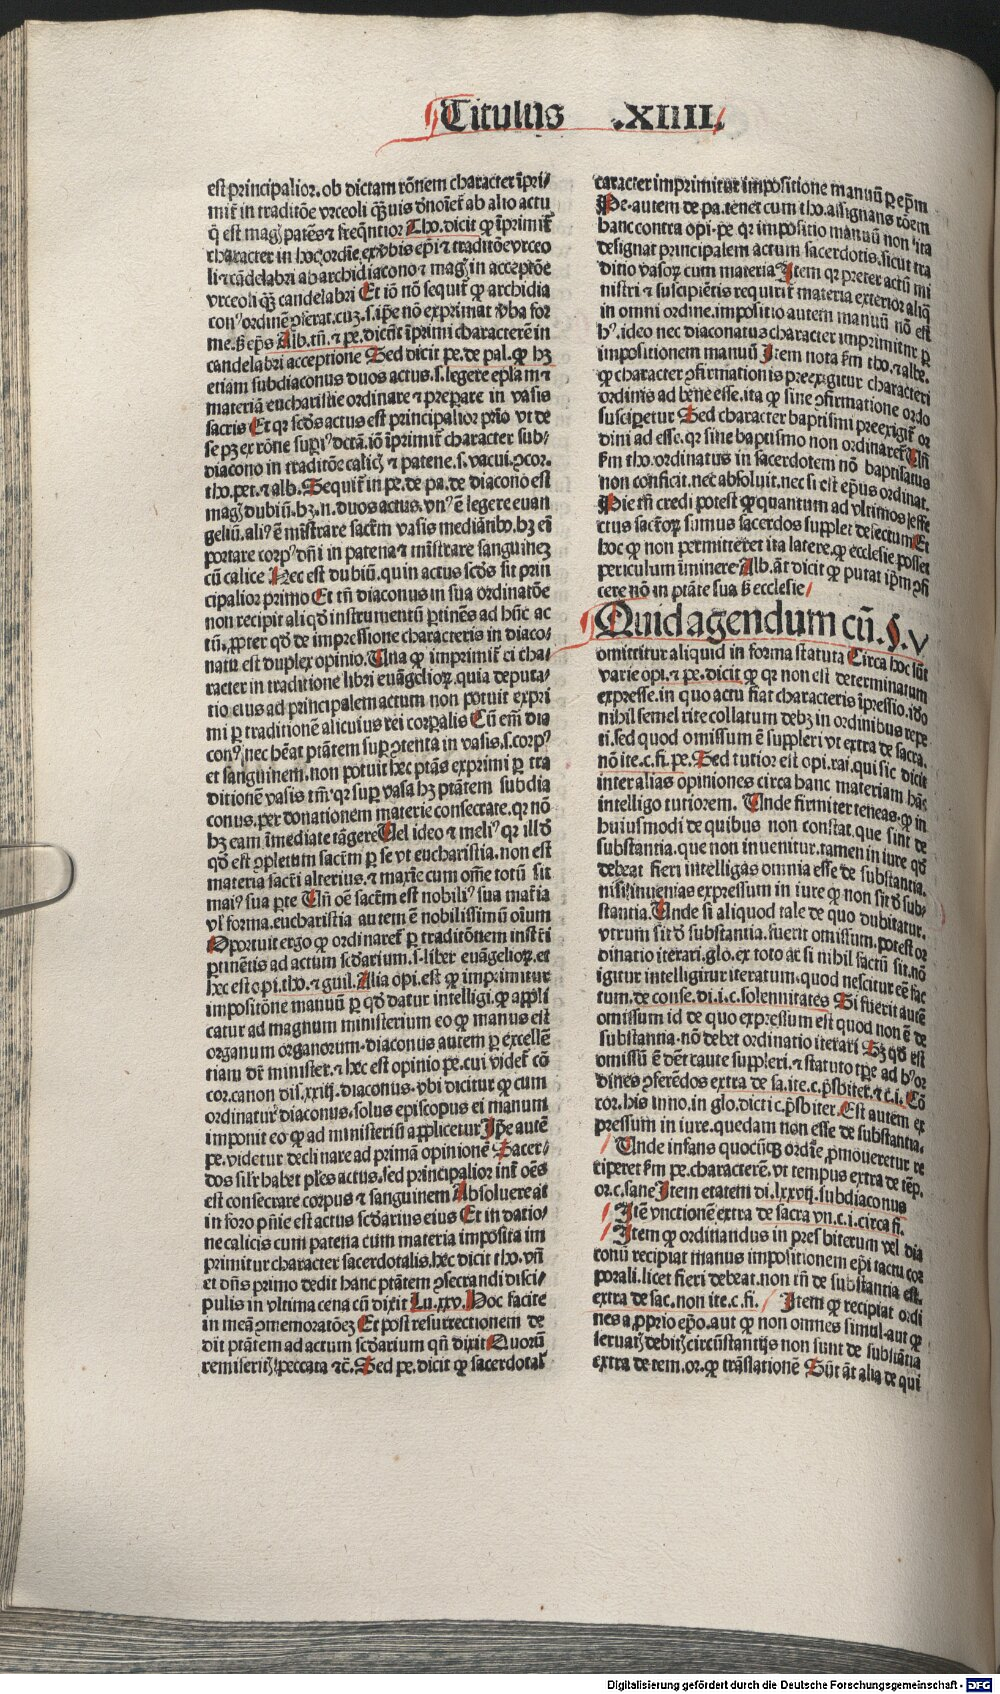 Titulus .XIIII.
est principalior. ob dictam rōnem character īpri⸗
mit̄ in traditōe vrceoli qͣuis ab alio actu
q̄ est magꝭ patēs ⁊ freqntior Tho. dicit ꝙ īprimit̄
character in hoc ordīe. ex vbis ep̄i ⁊ traditōe vrceo
li ⁊ cādelabri ab archidiacono ⁊ magꝭ in acceptōe
vrceoli qꝫ candelabri Et iō nō sequit̄ ꝙ archidia
conꝰ ordinē ꝯferat. cuꝫ .s. ip̄e nō exprimat vba for
me. ß ep̄s Alb. tn̄. ⁊ pe. dicūt īprimi characterē in
candelabri acceptione Sed dicit pe. de pal. ꝙ hꝫ
etiam subdiaconus duos actus .s. legere ep̄lam ⁊
materiā eucharistie ordinare ⁊ prepare in vasis
sacris Et qꝛ scd̄s actus est principalior prīo vt de
se pꝫ ex rōne supiꝰ dctā. iō īprimit̄ character sub⸗
diacono in traditōe calicꝭ ⁊ patene .s. vacui. ꝯcor.
tho. pet. ⁊ alb. Sequit̄ in pe. de pa. de diacono est
magꝭ dubiū. hꝫ .n. duos actus. vnꝰ ē legere euan
geliū. aliꝰ ē mīstrare sacr̄m vasis mediātibꝰ. hꝫ eī
portare corpꝰ dn̄i in patena ⁊ mīstrare sanguinez
cū calice Nec est dubiū. quin actus scd̄s sit prin
cipalior primo Et tn̄ diaconus in sua ordinatōe
non recipit aliqd̄ instrumentū ꝑtinēs ad hūc ac
tū. ꝓpter qd̄ de impressione characteris in diaco⸗
natu est duplex opinio. Una ꝙ imprimit̄ ei cha⸗
racter in traditione libri euāgelioꝝ. quia deputa⸗
tio eius ad principalem actum non potuit expri
mi ꝑ traditionē alicuius rei corꝑalis Cū em̄ dia
conꝰ. nec hēat ptātem suꝑ ꝯtenta in vasis .s. corpꝰ
et sanguinem. non potuit hec ptās exprimi ꝑ tra
ditionem vasis tm̄. qꝛ suꝑ vasa hꝫ ptātem subdia
conus. per donationem materie consecrate. qꝛ nō
hꝫ eam īmediate tāgere Uel ideo ⁊ meliꝰ qꝛ illd̄
qd̄ est ꝯpletum sacr̄m ꝑ se vt eucharistia. non est
materia sacr̄i alterius. ⁊ maxīe cum om̄e totū sit
maiꝰ sua ꝑte Un̄ oē sacr̄m est nobiliꝰ sua mat̄ia
vl̓ forma. eucharistia autem ē nobilissimū oīum
Oportuit ergo ꝙ ordinaret̄ ꝑ traditōnem instr̄i
ꝑtinētis ad actum scd̄arium .s. liber euāgelioꝝ. et
hec est opi. tho. ⁊ guil. Alia opi. est ꝙ imprimitur
impositōne manuū ꝑ qd̄ datur intelligi. ꝙ appli
catur ad magnum ministerium eo ꝙ manus est
organum organorum. diaconus autem ꝑ excellē
tiam dr̄ minister. ⁊ hec est opinio pe. cui videt̄ cō
cor. canon dis. xxiij. diaconus. vbi dicitur ꝙ cum
ordinatur diaconus. solus episcopus ei manum
imponit eo ꝙ ad ministeriū applicetur Ip̄e autē
pe. videtur declinare ad primā opinionē Sacer⸗
dos sil̓r habet pl̄es actus. sed principalior int̄ oēs
est consecrare corpus ⁊ sanguinem Absoluere āt
in foro pn̄ie est actus scd̄arius eius Et in datio⸗
ne calicis cum patena cum materia imposita im
primitur character sacerdotalis. hec dicit tho. vn̄
et dn̄s primo dedit hanc ptātem ꝯsecrandi disci⸗
pulis in vltima cena cū dixit Lu. xxv. Hoc facite
in meā ꝯmemoratōeꝫ Et post resurrectionem de
dit ptātem ad actum scd̄arium qn̄ dixit Quorū
remiseritꝭ peccata ⁊c̄. Sed pe. dicit ꝙ sacerdotal̓
caracter imprimitur impositione manuū ꝑ ep̄m
Pe. autem de pa. tenet cum tho. assignans rōem
hanc contra opi. pe. qꝛ impositio manuū non ita
designat principalem actum sacerdotis. sicut tra
ditio vasoꝝ cum materia Item qꝛ preter actū mi
nistri ⁊ suscipiētis requirit̄ materia exterior aliq̄
in omni ordine. impositio autem manuū nō est
hꝰ. ideo nec diaconatus character imprimitur ꝑ
impositionem manuū Item nota ẜm tho. ⁊ albe.
ꝙ character ꝯfirmationis preexigitur characteri
ordinis ad bene esse. ita ꝙ sine ꝯfirmatione ordo
suscipetur Sed character baptismi preexigit̄ or
dini ad esse. qꝛ sine baptismo non ordinaret̄ Un̄
ẜm tho. ordinatus in sacerdotem nō baptisatus
non conficit. nec absoluit. nec si est ep̄us ordinat.
Pie tn̄ credi potest ꝙ quantum ad vltimos effe
ctus sacr̄oꝝ sumus sacerdos supplet defectum Et
hoc ꝙ non permitteret ita latere. ꝙ ecclesie posset
periculum īminere Alb. āt dicit ꝙ putat ip̄m ꝯfi
cere nō in ptāte sua ß ecclesie
Quid agendum cū. §. V
omittitur aliquid in forma statuta Circa hoc sūt
varie opi. ⁊ pe. dicit ꝙ qꝛ non est determinatum
expresse. in quo actu fiat characteris īpressio. ido
nihil semel rite collatum debꝫ in ordinibus repe
ti. sed quod omissum ē suppleri vt extra de sacra.
nō ite. c. fi. pe. Sed tutior est opi. rai. qui sic dicit
inter alias opiniones circa hanc materiam hāc
intelligo tutiorem. Unde firmiter teneas. ꝙ in
huiusmodi de quibus non constat. que sint de
substantia. que non inuenitur. tamen in iure qd̄
debeat fieri intelligas omnia esse de substantia.
nisi inuenias expressum in iure ꝙ non sit d̄ sub⸗
stantia. Unde si aliquod tale de quo dubitatur.
vtrum sit d̄ substantia. fuerit omissum. potest or
dinatio iterari. glo. ex toto ac si nihil factū sit. nō
igitur intelligitur iteratum. quod nescitur eē fac
tum. de conse. di. i. c. solennitates Si fuerit autē
omissum id de quo expressum est quod non ē de
substantia. nō debet ordinatio iterari Sꝫ qd̄ est
omissū ē dēt caute suppleri. ⁊ statuto tꝑe ad hꝰ or
dines ꝯferēdos extra de sa. ite. c. p̄sbiter. ⁊ c. i. Cō
cor. his inno. in glo. dicti c. p̄sbiter. Est autem ex
pressum in iure. quedam non esse de substantia.
Unde infans quocūqꝫ ordīe ꝓmoueretur re
ciperet ẜm pe. characterē. vt tempus extra de tēp.
or. c. sane Item etatem di. lxxvij. subdiaconus
Itē vnctionem extra de sacra vn. c. i. circa fi.
Item ꝙ ordinandus in presbiterum vel dia
conū recipiat manus impositionem ep̄i tactu cor
porali. licet fieri debeat. non tn̄ de substantia est.
extra de sac. non ite. c. fi. Item ꝙ recipiat ordi
nes a ꝓprio ep̄o. aut ꝙ non omnes simul. aut ꝙ
seruatꝭ debitꝭ circūstantijs non sunt de substātia
extra de tem. or. ꝙ trāslationē Sūt āt alia de qui
Digitalisierung gefördert durch die Deutsche Forschungsgemeinschaft - DFG